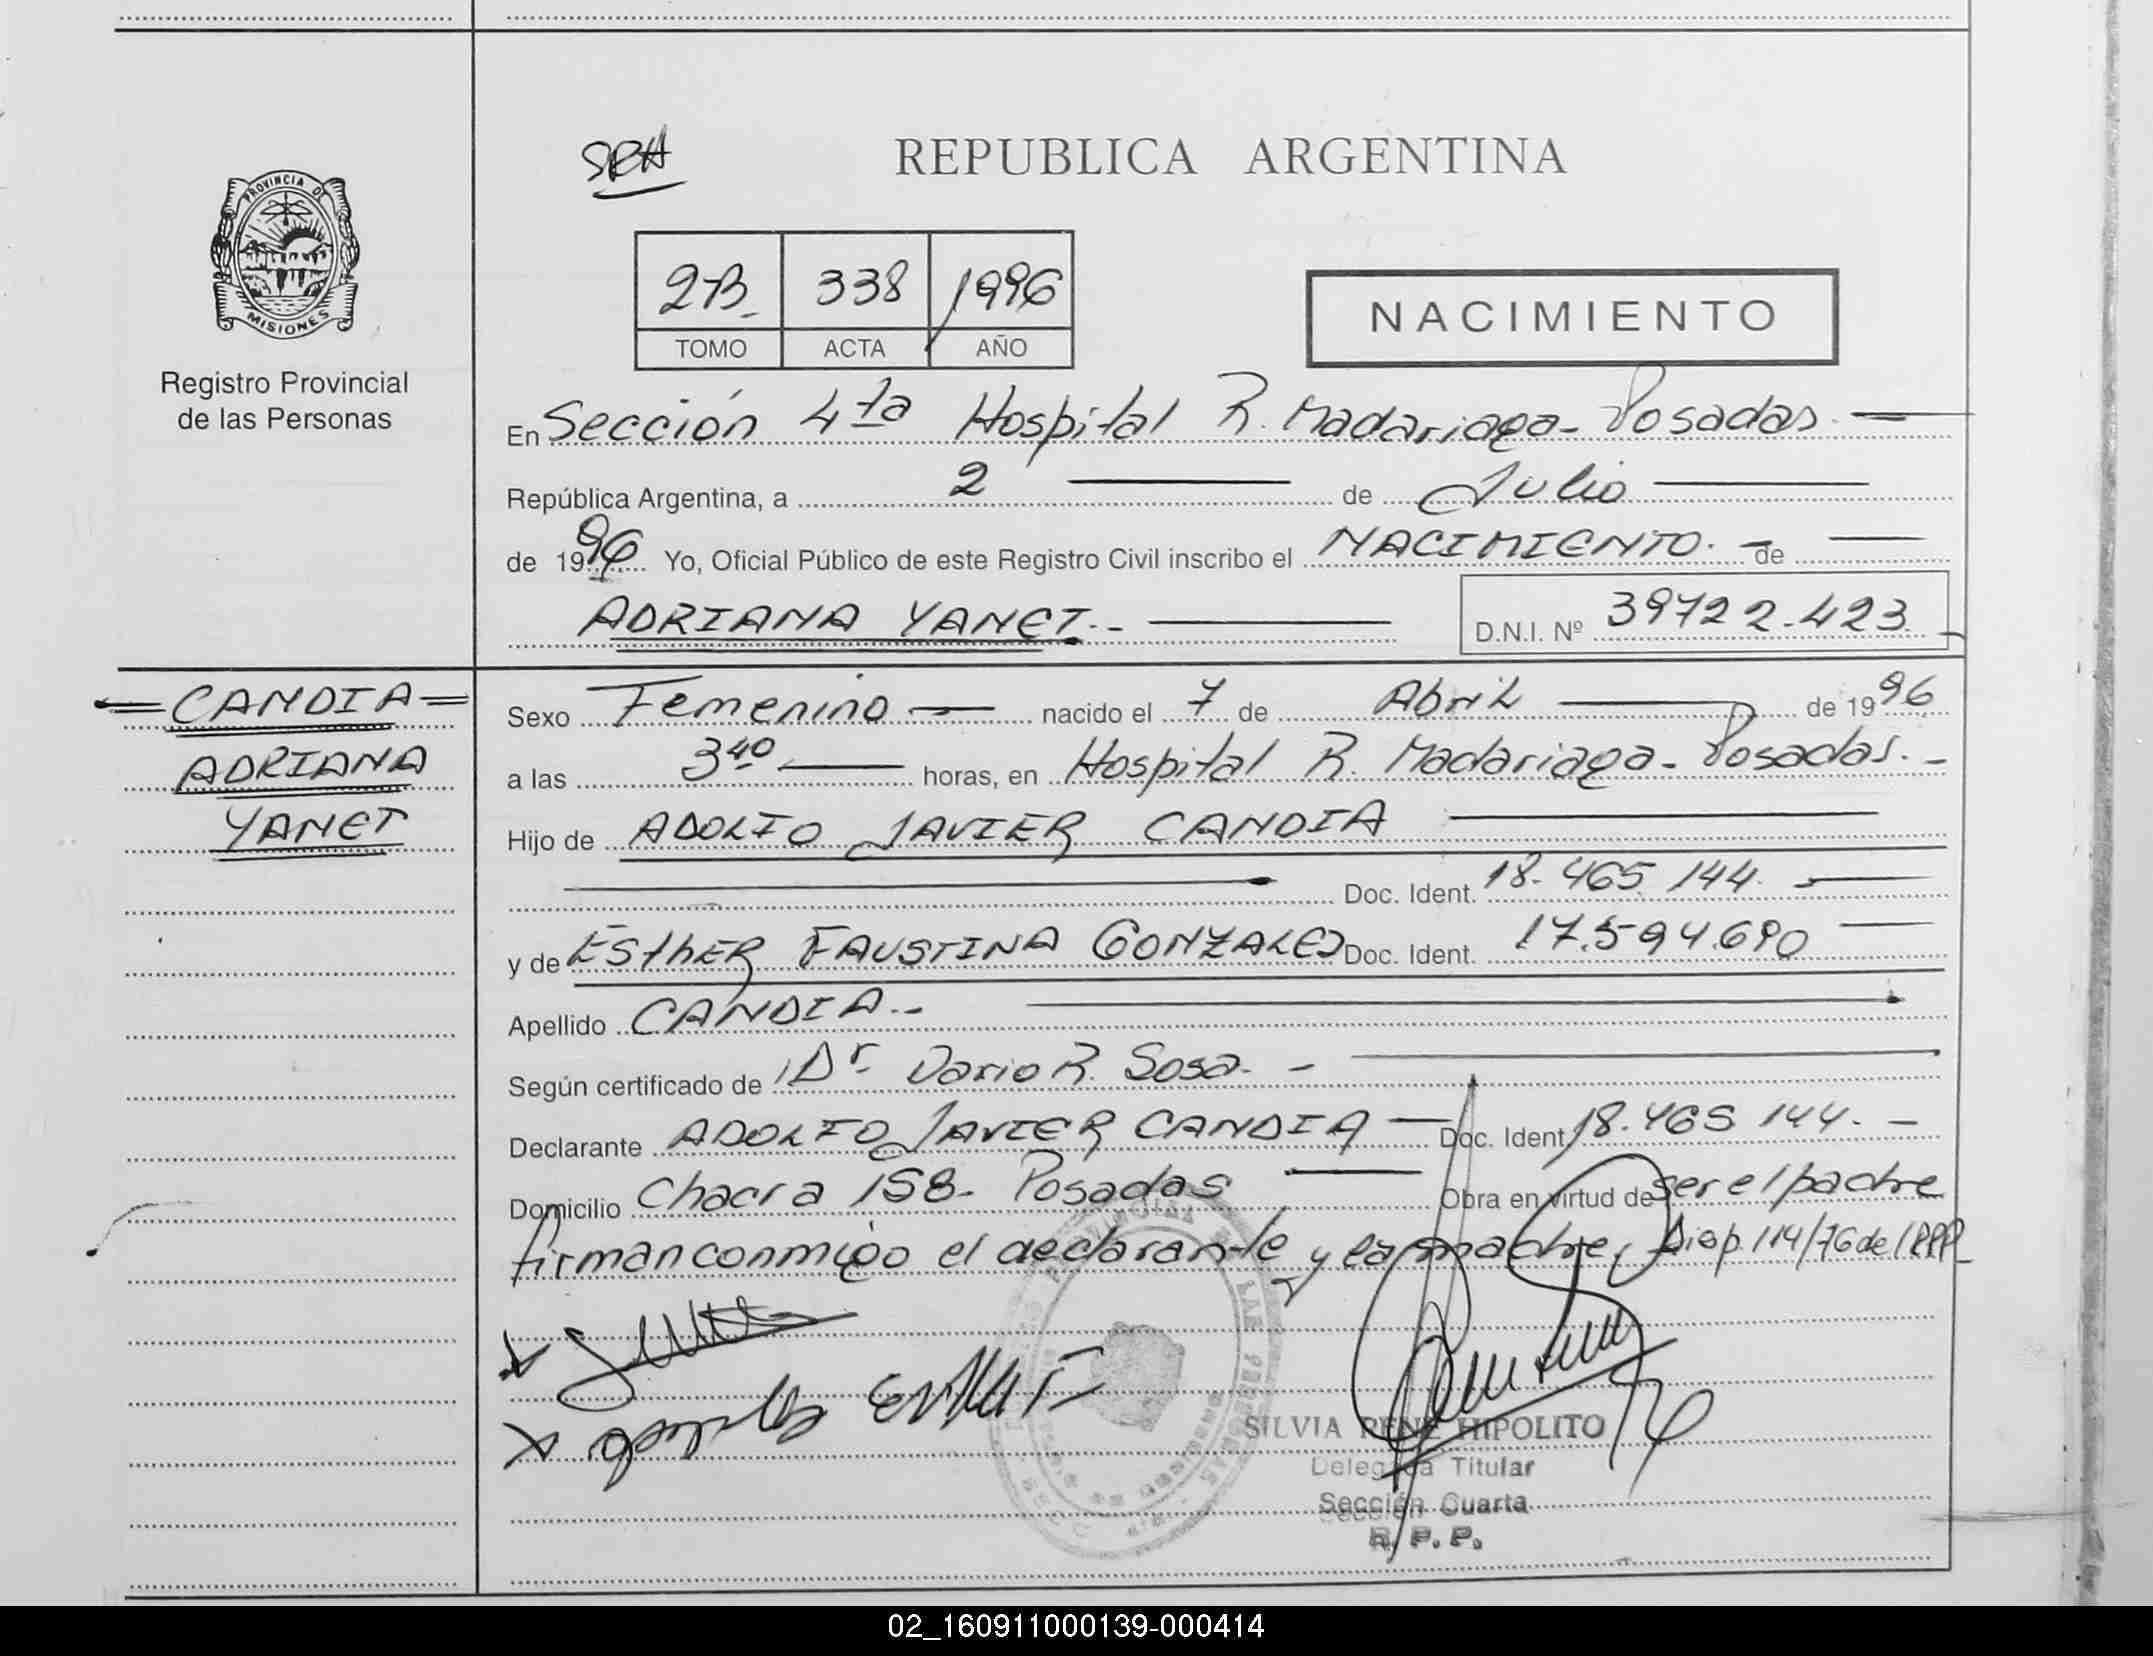 SRH
REPUBLICA ARGENTINA
PROVINCIA DE
MISIONES
Registro Provincial
de las Personas
2-B- 338 1996
TOMO ACTA AÑO
NACIMIENTO
En Sección 4ta Hospital R. Madariaga- Posadas.
República Argentina, a 2 de Julio
de 1996 Yo, Oficial Público de este Registro Civil inscribo el NACIMIENTO.- de
ADRIANA YANET.-
D.N.I. Nº 39722.423
=CANDIA=
ADRIANA
YANET
Sexo Femenino nacido el 7 de Abril de 1996
a las 3 40 horas, en Hospital R. Madariaga- Posadas.-
Hijo de ADOLFO JAVIER CANDIA
Doc. Ident. 18.465.144.
y de EsthER FAUSTINA GONZALES Doc. Ident. 17.594.690
Apellido CANDIA.-
Según certificado de Dr. Dario R. Sosa.-
Declarante ADOLFO JAVIER CANDIA Doc. Ident. 18.465 144.-
Domicilio Chacra 158- Posadas Obra en virtud de ser el padre
firman conmigo el declarante y la madre, Disp. 114/76 del RPP
X
X gonzales
SILVIA RENE HIPOLITO
Delegada Titular
Sección Cuarta
R. P. P.
02_160911000139-000414